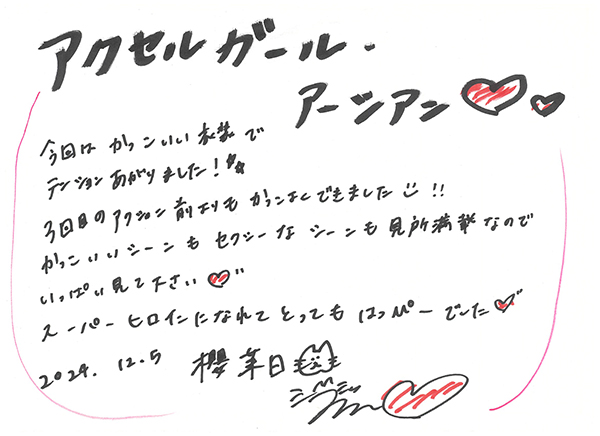 アクセルガール・
アーシアン
今回はかっこいい衣装で
テンションあがりました!
3回目のアクション前よりもかっこよくできました!!
かっこいいシーンもセクシーなシーンも見所満載なので
いっぱい見て下さい
スーパーヒロインになれてとってもはっぴーでした
2024.12.5 櫻茉日